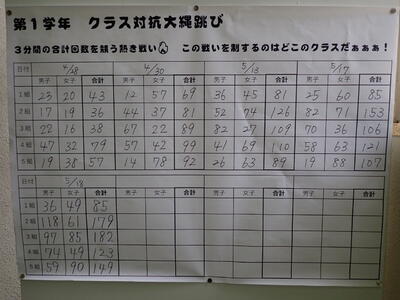 第1学年 クラス対抗大縄跳び
3分間の合計回数を競う熱き戦い この戦いを制するのはどこのクラスだぁぁぁ!
日付 4/28 4/30 5/13 5/17
男子 女子 合計 男子 女子 合計 男子 女子 合計 男子 女子 合計
1組 23 20 43 12 57 69 36 45 81 25 60 85
2組 17 19 36 44 37 81 52 74 126 82 71 153
3組 22 16 38 67 22 89 82 27 109 70 36 106
4組 47 32 79 57 42 99 41 69 110 58 63 121
5組 19 38 57 14 78 92 26 63 89 19 88 107
日付 5/18
男子 女子 合計 男子 女子 合計 男子 女子 合計 男子 女子 合計
1組 36 49 85
2組 118 61 179
3組 97 85 182
4組 74 49 123
5組 59 90 149